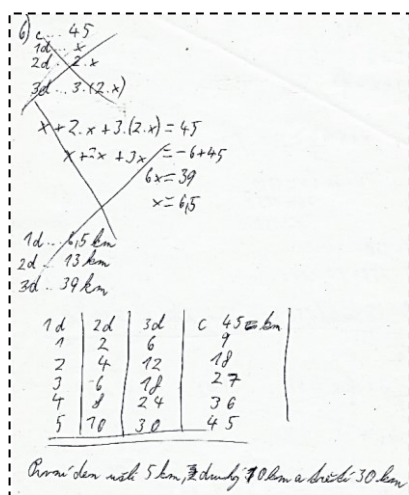 6) c... 45
1d.. x
2d.. 2.x
3d... 3.(2.x)
x+2.x+3.(2.x)=45
x+2x+3x =-6+45
6x=39
x=6,5
1d... 6,5 km
2d.. 13 km
3d.. 39 km
1d 2d 3d c 45 km
1 2 6 9
2 4 12 18
3 6 18 27
4 8 24 36
5 10 30 45
První den ušli 5 km, druhý 10 km a třetí 30 km